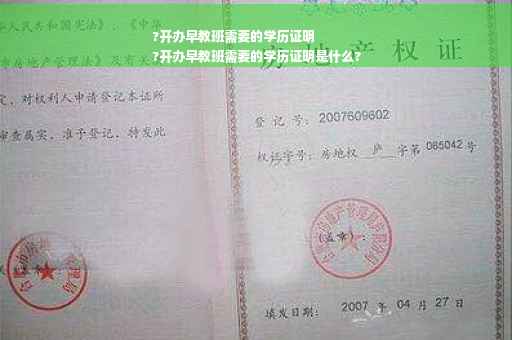 ?开办早教班需要的学历证明
?开办早教班需要的学历证明是什么?
华人民共和国宪法》
市房地产管理法》及有关
定，对权利人申请登记本证所
审查属实，准予登记，特发此
房地产权证
登 记 号：2007609602
权证字号：房地权 庐 字第 065042 号
(盖章)：
填发日期：2007 年 04 月 27 日